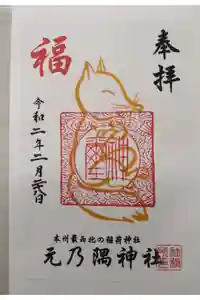 奉拝
福
令和二年二月二六日
本州最西北の稲荷神社
元乃隅神社